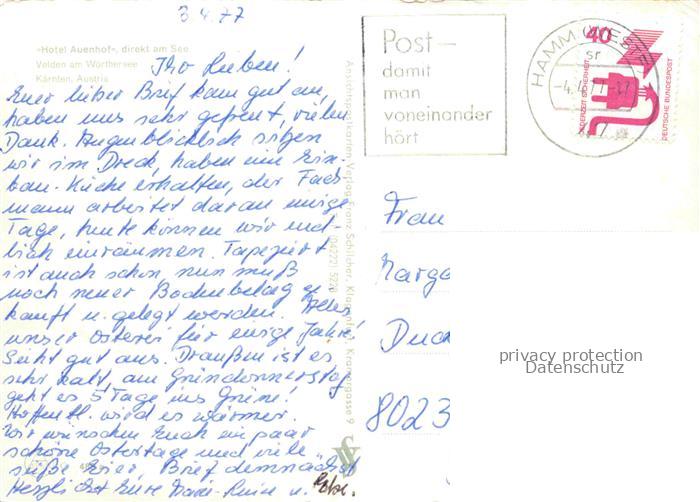 3.4.77
«Hotel Auenhof», direkt am See
Velden am Wörthersee
Kärnten, Austria
Ihr Lieben!
Euer lieber Brief kam gut an,
haben uns sehr gefreut, vielen
Dank. Augenblicklich sitzen
wir im Dreck, haben eine Ein
bau-Küche erhalten, der Fach
mann arbeitet daran einige
Tage, heute können wir end-
lich einräumen. Tapeziert
ist auch schon, nun muß
noch neuer Bodenbelag ge
kauft u. gelegt werden. Alles
unser Osterei für einige Jahre!
Seiht gut aus. Draußen ist es
sehr kalt, am Gründonnerstag
geht es 5 Tage ins Grüne!
Hoffentl. wird es wärmer.
Wir wünschen Euch ein paar
schöne Ostertage und viele
süße Eier, Brief demnächst
Herzlichst Eure u.
Ansichtskartenverlag Franz Schilcher, Klagenfurt, 9
Post –
damit
man
voneinander
hört
HAMM (WESTF
sr
-4.
40
JEDERZEIT SICHERHEIT
DEUTSCHE BUNDESPOST
Frau
Marga
Duc
8023
privacy protection
Datenschutz